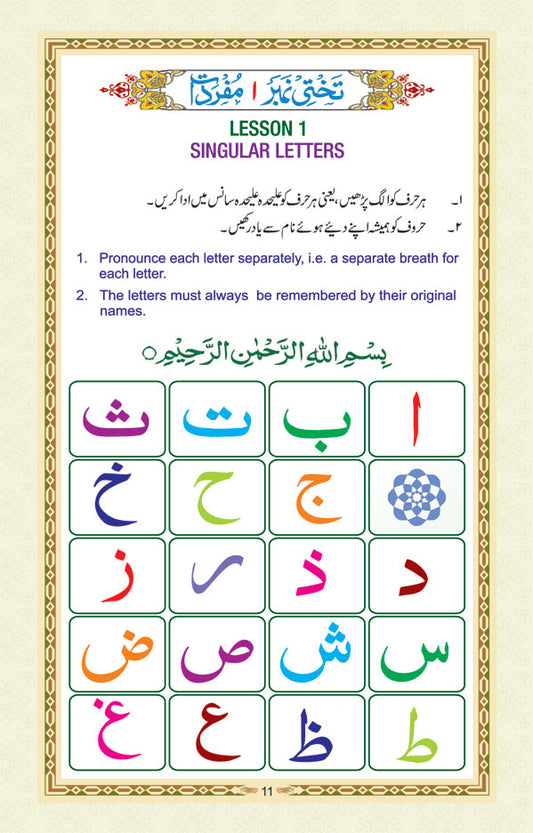 تختی نمبر ۱ مفردات
LESSON 1
SINGULAR LETTERS
۱۔ ہر حرف کو الگ پڑھیں، یعنی ہر حرف کو علیحدہ علیحدہ سانس میں ادا کریں۔
۲۔ حروف کو ہمیشہ اپنے دیئے ہوئے نام سے یاد رکھیں۔
1. Pronounce each letter separately, i.e. a separate breath for
each letter.
2. The letters must always be remembered by their original
names.
بِسْمِ اللهِ الرَّحْمٰنِ الرَّحِيْمِ ○
ا ب ت ث
ج ح خ
د ذ ر ز
س ش ص ض
ط ظ ع غ
11